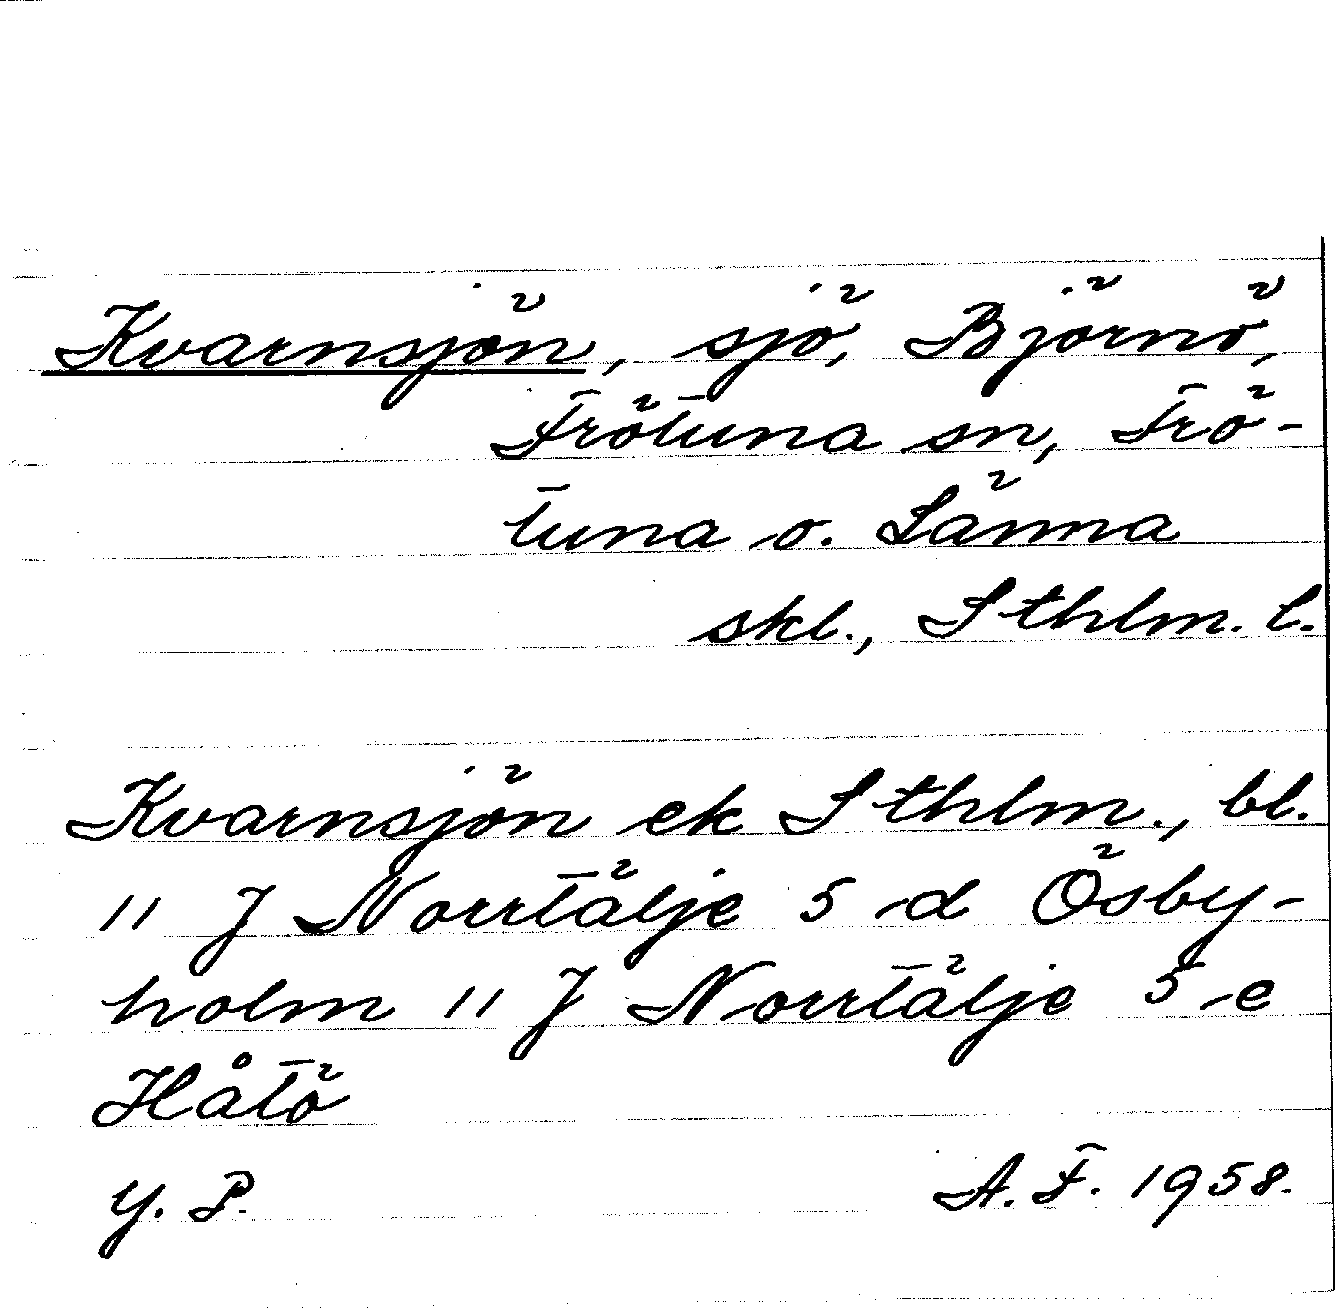 Kvarnsjön, sjö, Björnö,
Frötuna sn, Frö-
tuna o. Länna
skl., Sthlm. l.
Kvarnsjön ek Sthlm., bl.
11 J Norrtälje 5-d Ösby-
holm 11 J Norrtälje 5-e
Håtö
Y. P. A. F. 1958.